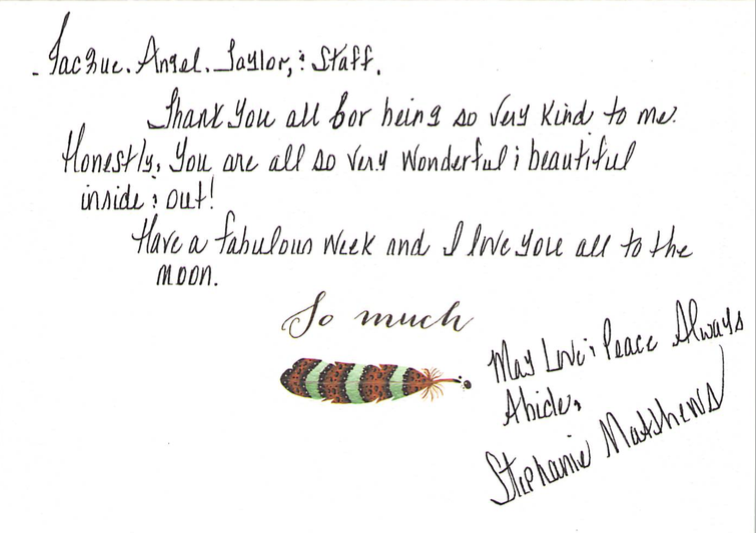 Jacque, Angel, Taylor, & Staff.
Thank you all for being so very kind to me.
Honestly, you are all so very wonderful & beautiful
inside & out!
Have a fabulous week and I love you all to the
moon.
So much
May Love & Peace Always
Abide,
Stephanie Matthews